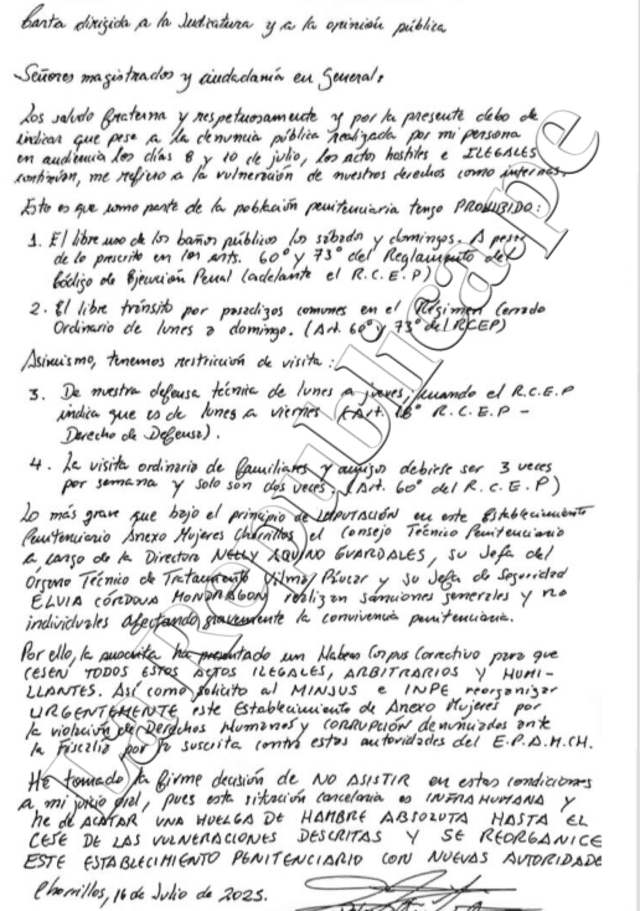 Carta dirigida a la Judicatura y a la opinión pública
Señores magistrados y ciudadanía en General:
Los saludo fraterna y respetuosamente y por la presente debo de
indicar que pese a la denuncia pública realizada por mi persona
en audiencia los días 8 y 10 de julio, los actos hostiles e ILEGALES
continúan, me refiero a la vulneración de nuestros derechos como internas.
Esto es que como parte de la población penitenciaria tengo PROHIBIDO:
1. El libre uso de los baños públicos los sábados y domingos. A pesar
de lo prescrito en los arts. 60° y 73° del Reglamento del
Código de Ejecución Penal (adelante el R.C.E.P)
2. El libre tránsito por pasadizos comunes en el Régimen Cerrado
Ordinario de lunes a domingo. (Art. 60° y 73° del RCEP)
Asimismo, tenemos restricción de visita:
3. De nuestra defensa técnica de lunes a jueves, cuando el R.C.E.P
indica que es de lunes a viernes (Art. R.C.E.P -
Derecho de Defensa).
4. La visita ordinaria de familiares y amigos debiese ser 3 veces
por semana y solo son dos veces. (Art. 60° del R.C.E.P)
Lo más grave que bajo el principio de IMPUTACIÓN en este Establecimiento
Penitenciario Anexo Mujeres Chorrillos el Consejo Técnico Penitenciario
a cargo de la Directora NELLY AQUINO GUARDALES, su Jefa del
Organo Técnico de Tratamiento Vilma Páucar y su Jefa de Seguridad
ELVIA CÓRDOVA MONDRAGON realizan sanciones generales y no
individuales afectando gravemente la convivencia penitenciaria.
Por ello, la suscrita ha presentado un Habeas Corpus Correctivo para que
CESEN TODOS ESTOS ACTOS ILEGALES, ARBITRARIOS Y HUMI-
LLANTES. Así como solicito al MINJUS e INPE reorganizar
URGENTEMENTE este Establecimiento de Anexo Mujeres por
la violación de Derechos Humanos y CORRUPCIÓN denunciados ante
la Fiscalía por la suscrita contra estas autoridades del E.P.A.M.CH.
He tomado la firme decisión de NO ASISTIR en estas condiciones
a mi juicio oral, pues esta situación carcelaria es INFRAHUMANA y
he de ACATAR UNA HUELGA DE HAMBRE ABSOLUTA HASTA EL
CESE DE LAS VULNERACIONES DESCRITAS Y SE REORGANICE
ESTE ESTABLECIMIENTO PENITENCIARIO CON NUEVAS AUTORIDADE
Chorrillos, 16 de Julio de 2025.
Larepublica.pe